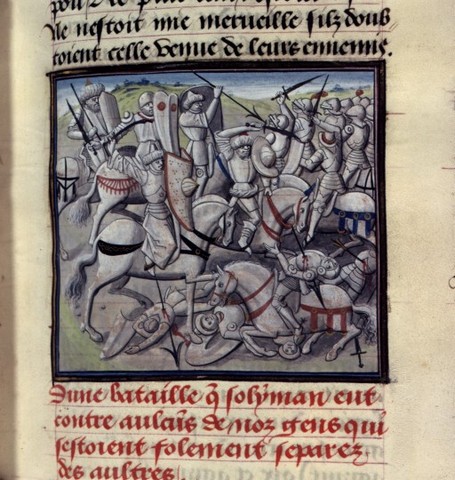 Ne nestoit mie merueille silz doub
toient celle venue de leurs ennemis.
Dune bataille q̄ solyman eut
contre aulcūs de noz gens qui
sestoient folement separez
des aultres.